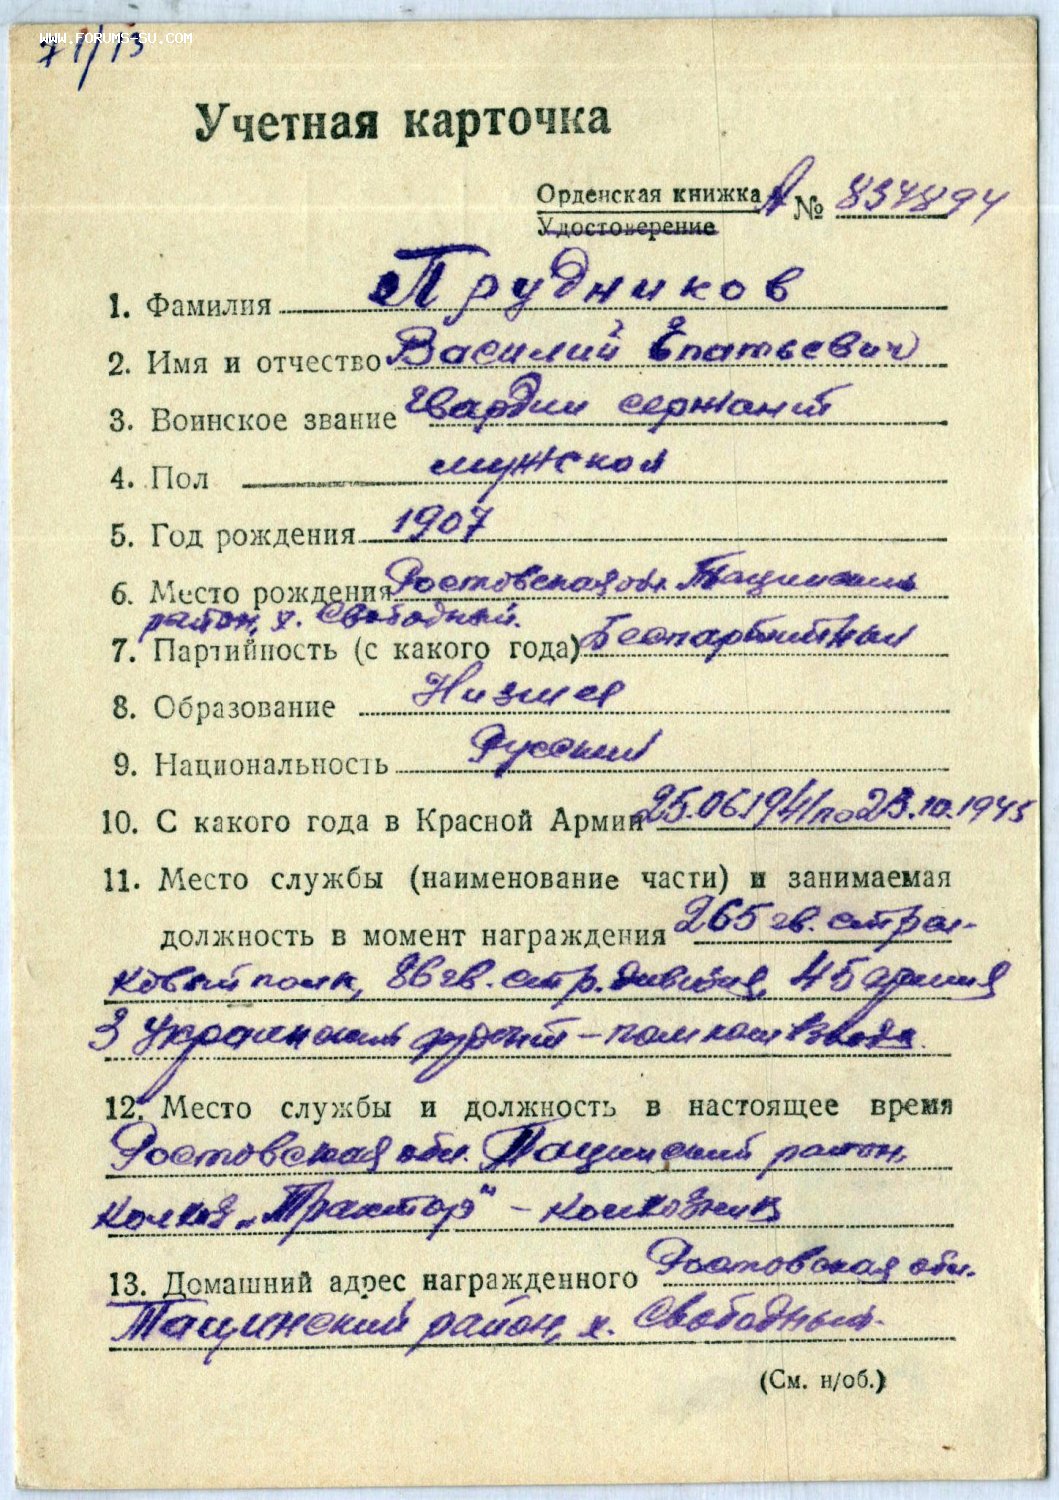 WWW.FORUMS-SU.COM
71/13
Учетная карточка
Орденская книжка А № 834894
Удостоверение
1. Фамилия Прудников
2. Имя и отчество Василий Епатьевич
3. Воинское звание гвардии сержант
4. Пол мужской
5. Год рождения 1907
6. Место рождения Ростовская обл. Тацинский
район, х. Свободный.
7. Партийность (с какого года) Беспартийный
8. Образование Низшее
9. Национальность Русский
10. С какого года в Красной Армии 25.06.1941 по 23.10.1945
11. Место службы (наименование части) и занимаемая
должность в момент награждения 265 гв. стрел-
ковый полк, 86 гв. стр. дивизия, 45 армия
3 Украинский фронт – пом ком взвода.
12. Место службы и должность в настоящее время
Ростовская обл. Тацинский район,
колхоз „Трактор" – колхозник
13. Домашний адрес награжденного Ростовская обл.
Тацинский район, х. Свободный.
(См. н/об.)